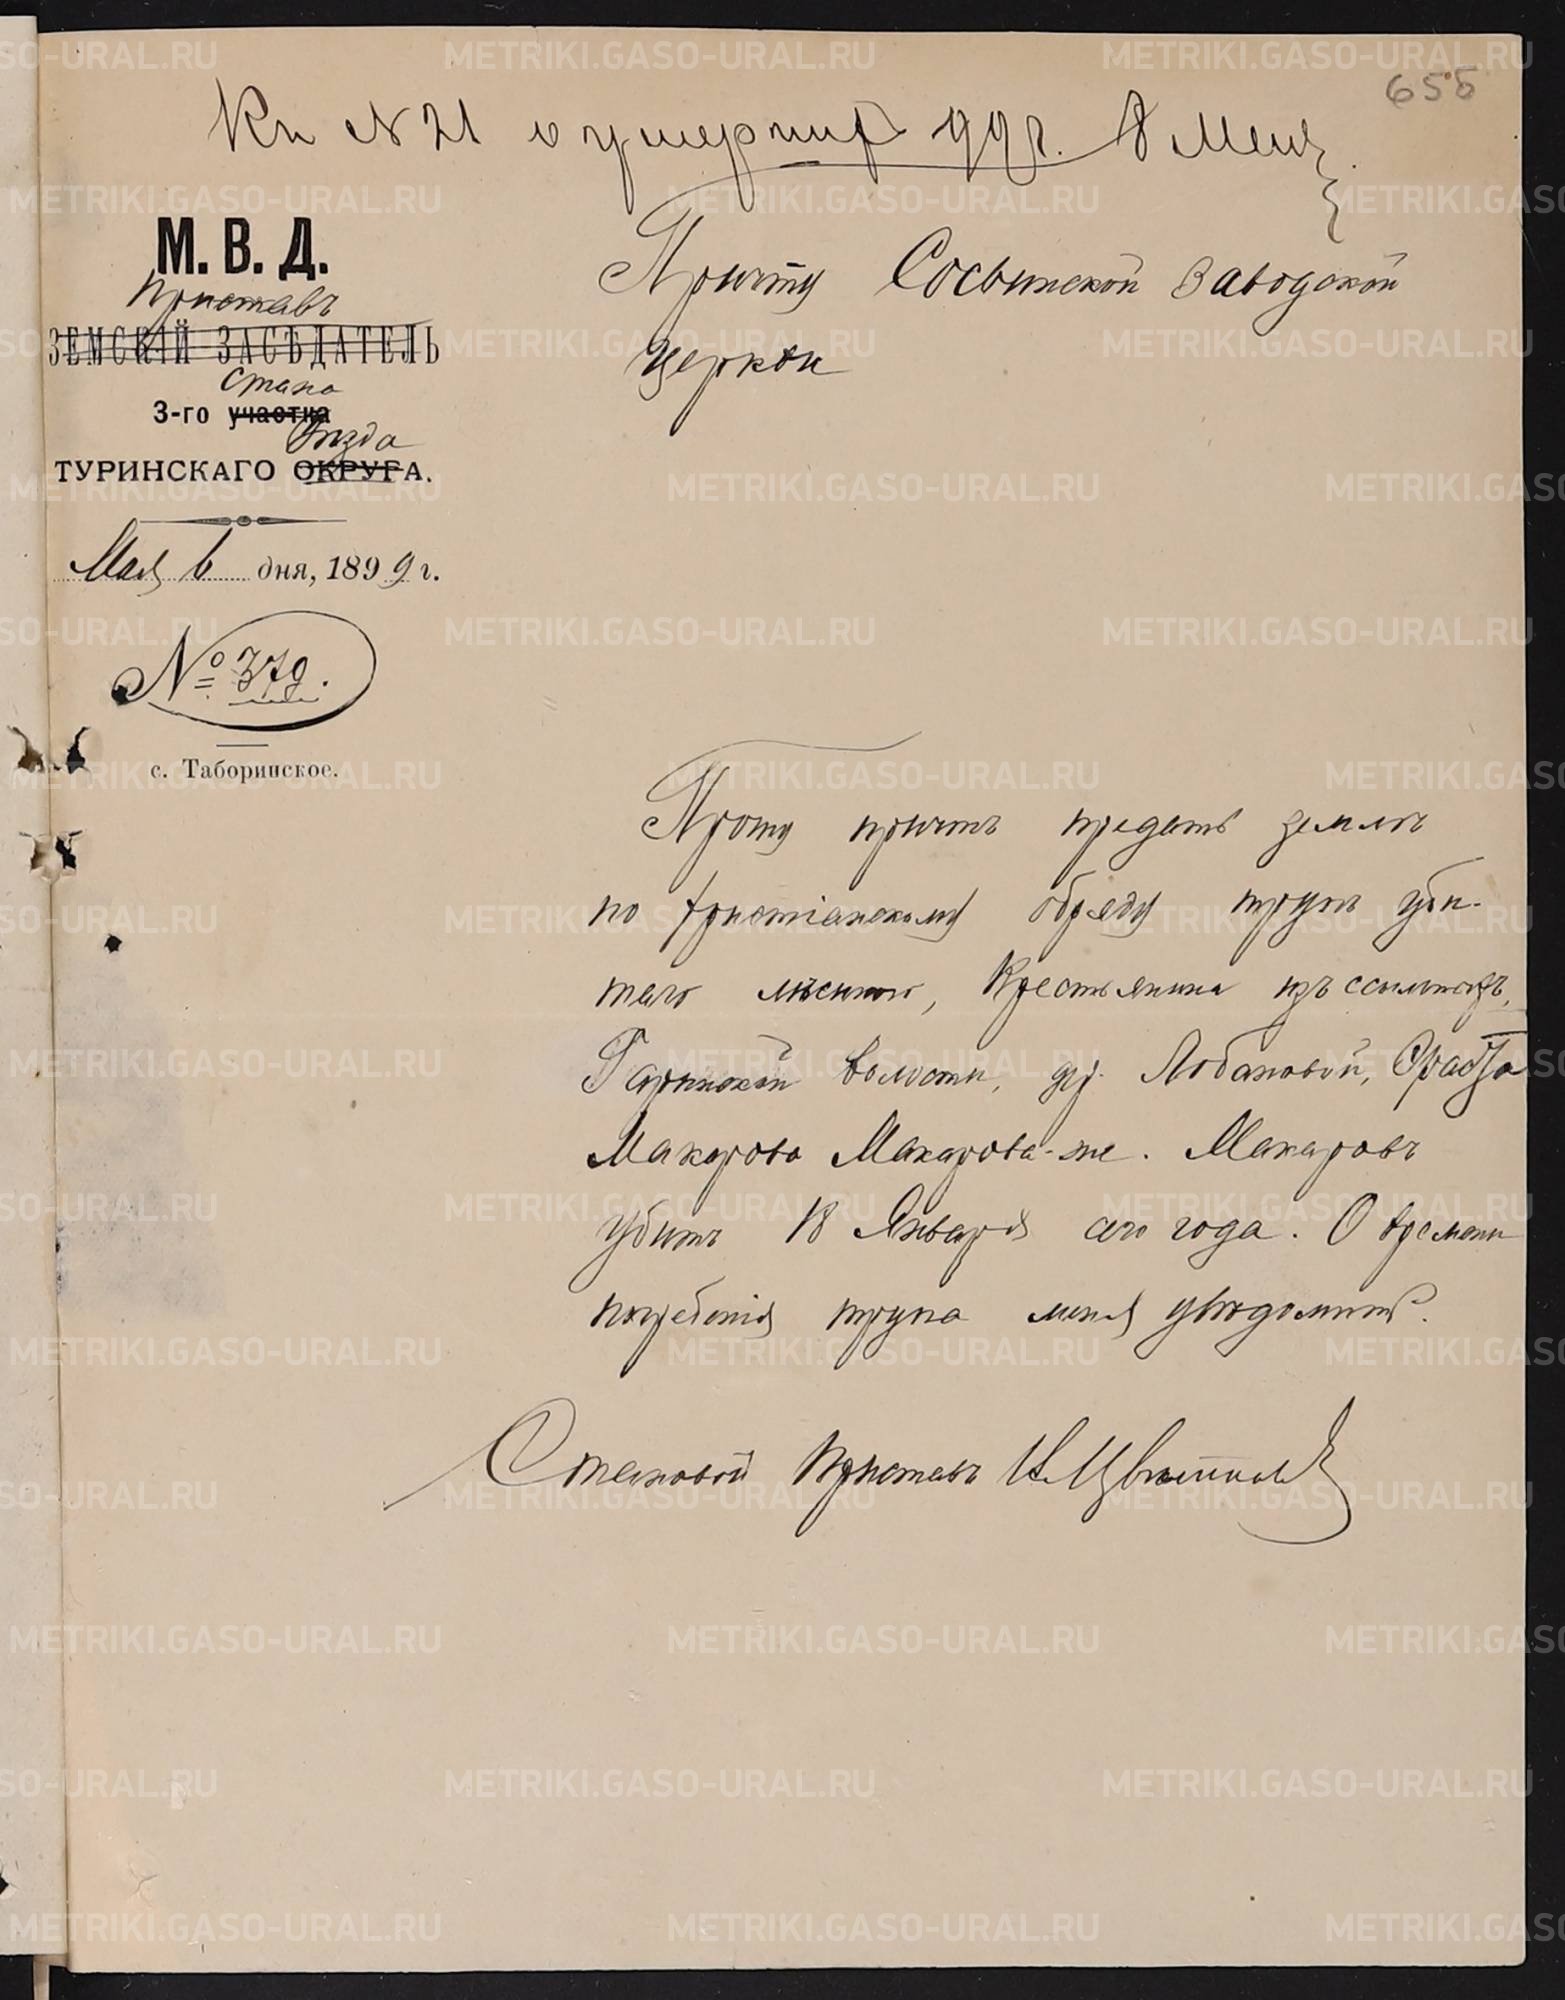 655
Къ № 21 о умершихъ 99 г. 8 Мая
М. В. Д.
Приставъ
ЗЕМСКІЙ ЗАСѢДАТЕЛЬ
Стана
3-го участка
Уѣзда
ТУРИНСКАГО ОКРУГА.
Мая 6 дня, 1899 г.
№ 379.
с. Таборинское.
Причту Сосвинской Заводской
Церкви
Прошу причтъ предать землѣ
по христіанскому обряду трупъ уби-
таго лѣсного, Крестьянина изъ ссыльныхъ,
Гаринской волости, дер. Лобановой,
Макарова Макарова-же. Макаровъ
убитъ 18 Января сего года. О времени
погребенія трупа меня увѣдомить.
Становой Приставъ
METRIKI.GASO-URAL.RU